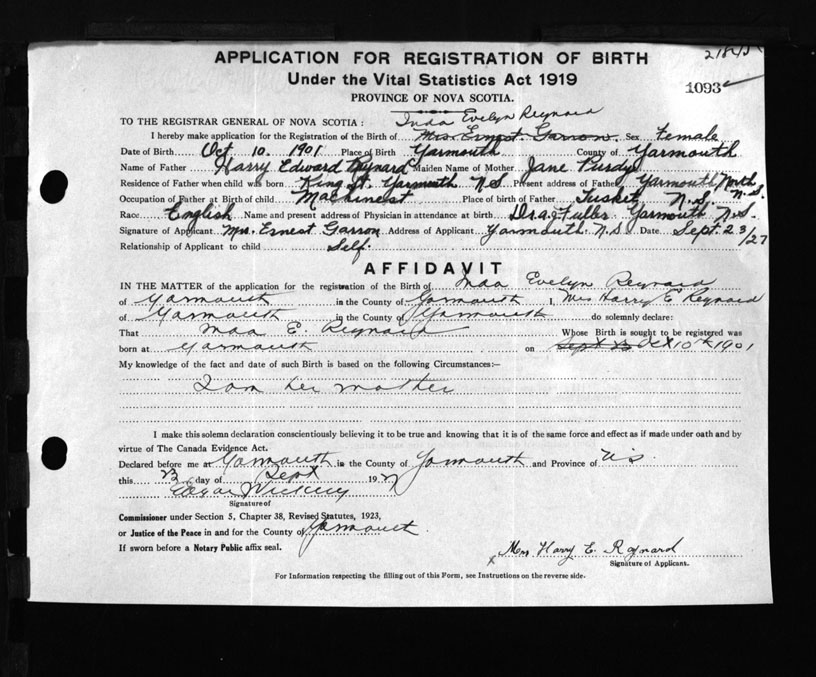 APPLICATION FOR REGISTRATION OF BIRTH
Under the Vital Statistics Act 1919
PROVINCE OF NOVA SCOTIA.
1093
Evelyn Reynard
TO THE REGISTRAR GENERAL OF NOVA SCOTIA:
I hereby make application for the Registration of the Birth of Mrs. Ernest Garron. Sex Female
Date of Birth Oct 10. 1901 Place of Birth Yarmouth County of Yarmouth
Name of Father Harry Edward Reynard Maiden Name of Mother Jane Purdy
Residence of Father when child was born King St. Yarmouth N.S. Present address of Father Yarmouth North N.S.
Occupation of Father at Birth of child Machinest Place of birth of Father Tusket N.S.
Race English Name and present address of Physician in attendance at birth Fuller Yarmouth N.S.
Signature of Applicant Mrs. Ernest Garron Address of Applicant Yarmouth. N.S Date Sept. 23/27
Relationship of Applicant to child Self.
AFFIDAVIT
IN THE MATTER of the application for the registration of the Birth of Evelyn Reynard
of Yarmouth in the County of Yarmouth I, Mrs Harry E Reynard
of Yarmouth in the County of Yarmouth do solemnly declare:
That E. Reynard Whose Birth is sought to be registered was
born at Yarmouth on Sept 23 Oct 10th 1901
My knowledge of the fact and date of such Birth is based on the following Circumstances:—
I am her mother
I make this solemn declaration conscientiously believing it to be true and knowing that it is of the same force and effect as if made under oath and by
virtue of The Canada Evidence Act.
Declared before me at Yarmouth in the County of Yarmouth and Province of N.S.
this 23 day of Sept 1927
Edgar
Signature of
Commissioner under Section 5, Chapter 38, Revised Statutes, 1923,
or Justice of the Peace in and for the County of Yarmouth
If sworn before a Notary Public affix seal.
x Mrs Harry E. Raynard
Signature of Applicant.
For Information respecting the filling out of this Form, see Instructions on the reverse side.